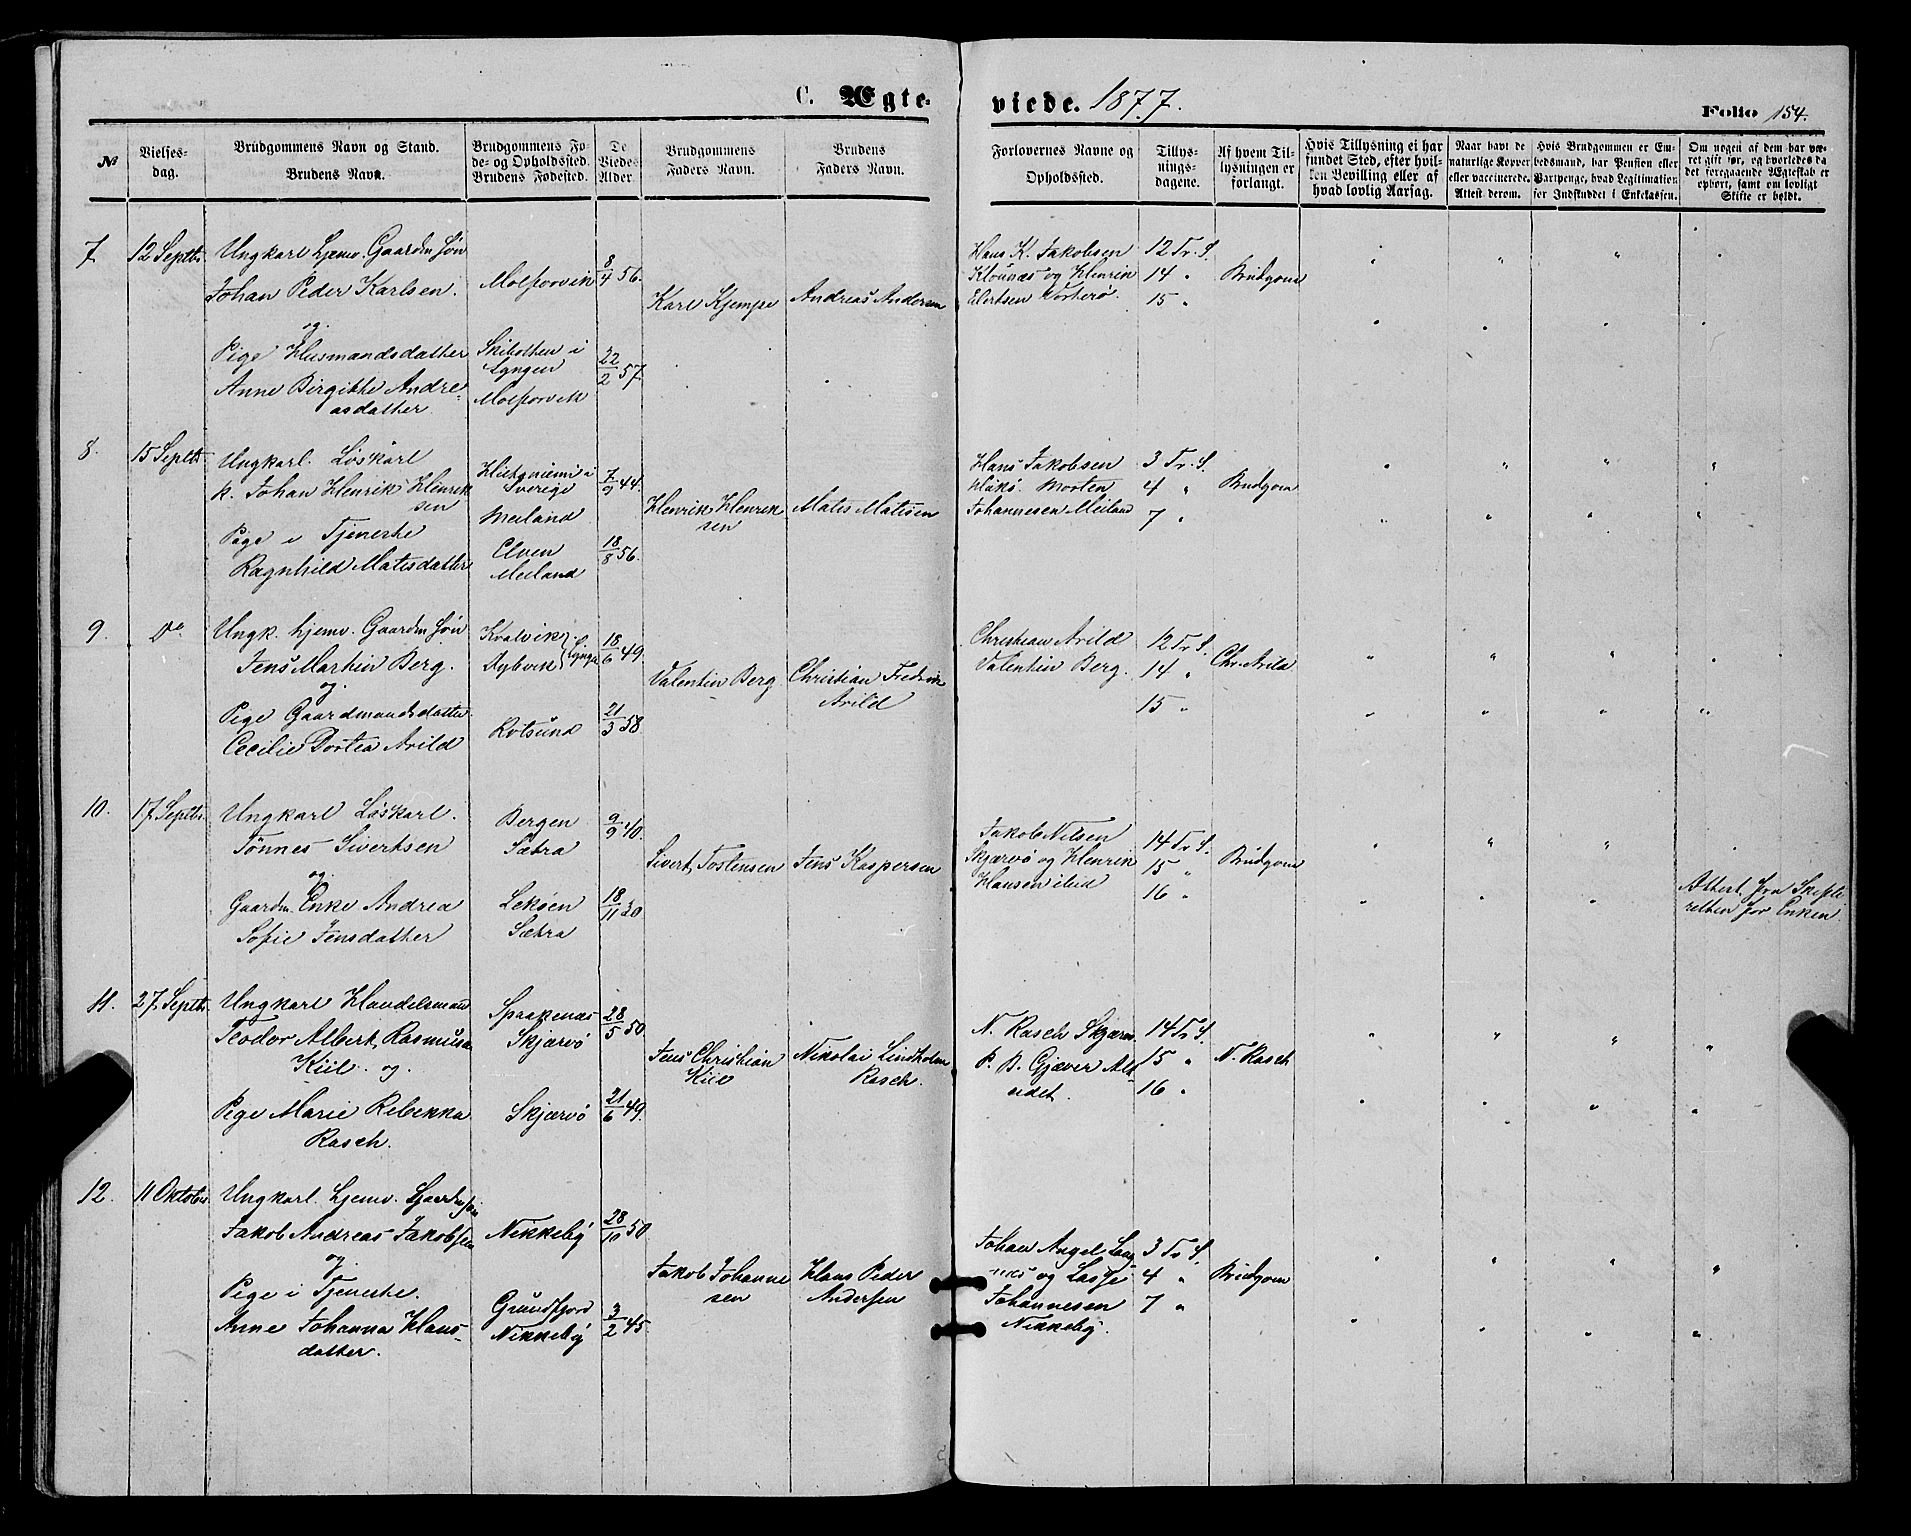 C. Ægteviede. 1877.
Folio 154.
№
Vielses-
dag.
Brudgommens Navn og Stand.
Brudens Navn.
Brudgommens Fø-
de- og Opholdssted.
Brudens Fødested.
De
Viedes
Alder.
Brudgommens
Faders Navn.
Brudens
Faders Navn.
Forlovernes Navne og
Opholdssted.
Tillys-
nings-
dagene.
Af hvem Til-
lysningen er
forlangt.
Hvis Tillysning ei har
fundet Sted, efter hvil-
ken Bevilling eller af
hvad lovlig Aarsag.
Naar havt de
naturlige Kopper
eller vaccinerede.
Attest derom.
Hvis Brudgommen er Em-
bedsmand, har Pension eller
Partpenge, hvad Legitimation
for Indskuddet i Enkekassen.
Om nogen af dem har væ-
ret gift før, og hvorledes da
det foregaaende Ægteskab er
ophørt, samt om lovligt
Skifte er holdt.
7
12 Septbr.
Ungkarl hjemv. Gaardm Søn
Johan Peder Karlsen.
og
Pige Husmandsdatter
Anne Birgithe Andre-
asdatter.
Molforvik
Skibotten i
Lyngen
Molforvik
8/4 56.
22/2 57.
Karl Kjempe
Andreas Andersen
Hans K. Jakobsen
og Henrik
Elertsen Vorterø.
12 Tr. S.
14 "
15 "
Brudgom
8.
15 Septbr.
Ungkarl. Løskarl
k. Johan Henrik Henrik
sen
Pige i Tjeneste
Ragnhild Matisdatter
Hietaniemi i
Sverige
Meiland
Elven
Meiland
7/9 44.
18/8 56.
Henrik Henrik
sen
Matis Matisen
Hans Jakobsen
Morten
Johannesen Meiland
3 Tr. S.
4 "
7 "
Brudgom
9.
Do
Ungk. hjemv. Gaardm Søn
Jens Martin Berg.
og
Pige Gaardmandsdatter
Cecilie Dortea Arild
Kvalvik
Lyngen
Rotsund
18/6 49.
21/3 58
Valentin Berg
Christian Fredrik
Arild
Christian Arild
Valentin Berg.
12 Tr S.
14 "
15 "
Chr. Arild
10.
17 Septbr.
Ungkarl Løskarl.
Tönnes Sivertsen
og
Gaardm. Enke Andrea
Sofie Jensdatter
Bergen
Sætra
Leköen
Sætra
9/9 40.
18/11 30.
Sivert Tostensen
Jens Kaspersen
Jakob Nilsen
Skjærvö og Henrik
Hansen ibid
14 Tr. S.
15 "
16 "
Brudgom
Attest fra Skifte-
retten for Enken
11.
27 Septbr.
Ungkarl Handelsmand
Teodor Albert Rasmus
Kiil. og.
Pige Marie Rebekka
Rasch.
Spaakenæs
Skjærvö
Skjærvö
28/5 50.
21/6 49.
Jens Christian
Kiil
Nikolai Lindholm
Rasch.
N. Rasch Skjærvö
P. B. Gjæver Alt-
eidet.
14 Tr S.
15 "
16 "
N. Rasch
12.
11 Oktober.
Ungkarl. hjemv. Gaardm søn
Jakob Andreas Jakobsen
og
Pige i Tjeneste.
Anne Johanna Hans-
datter.
Nikkeby
Grundfjord
Nikkeby
28/10 50
3/2 45.
Jakob Johanne
sen
Hans Peder
Andersen
Johan Angel Lang
næs og Lasse
Johannesen
Nikkeby.
3 Tr S.
4 "
7 "
Brudgom